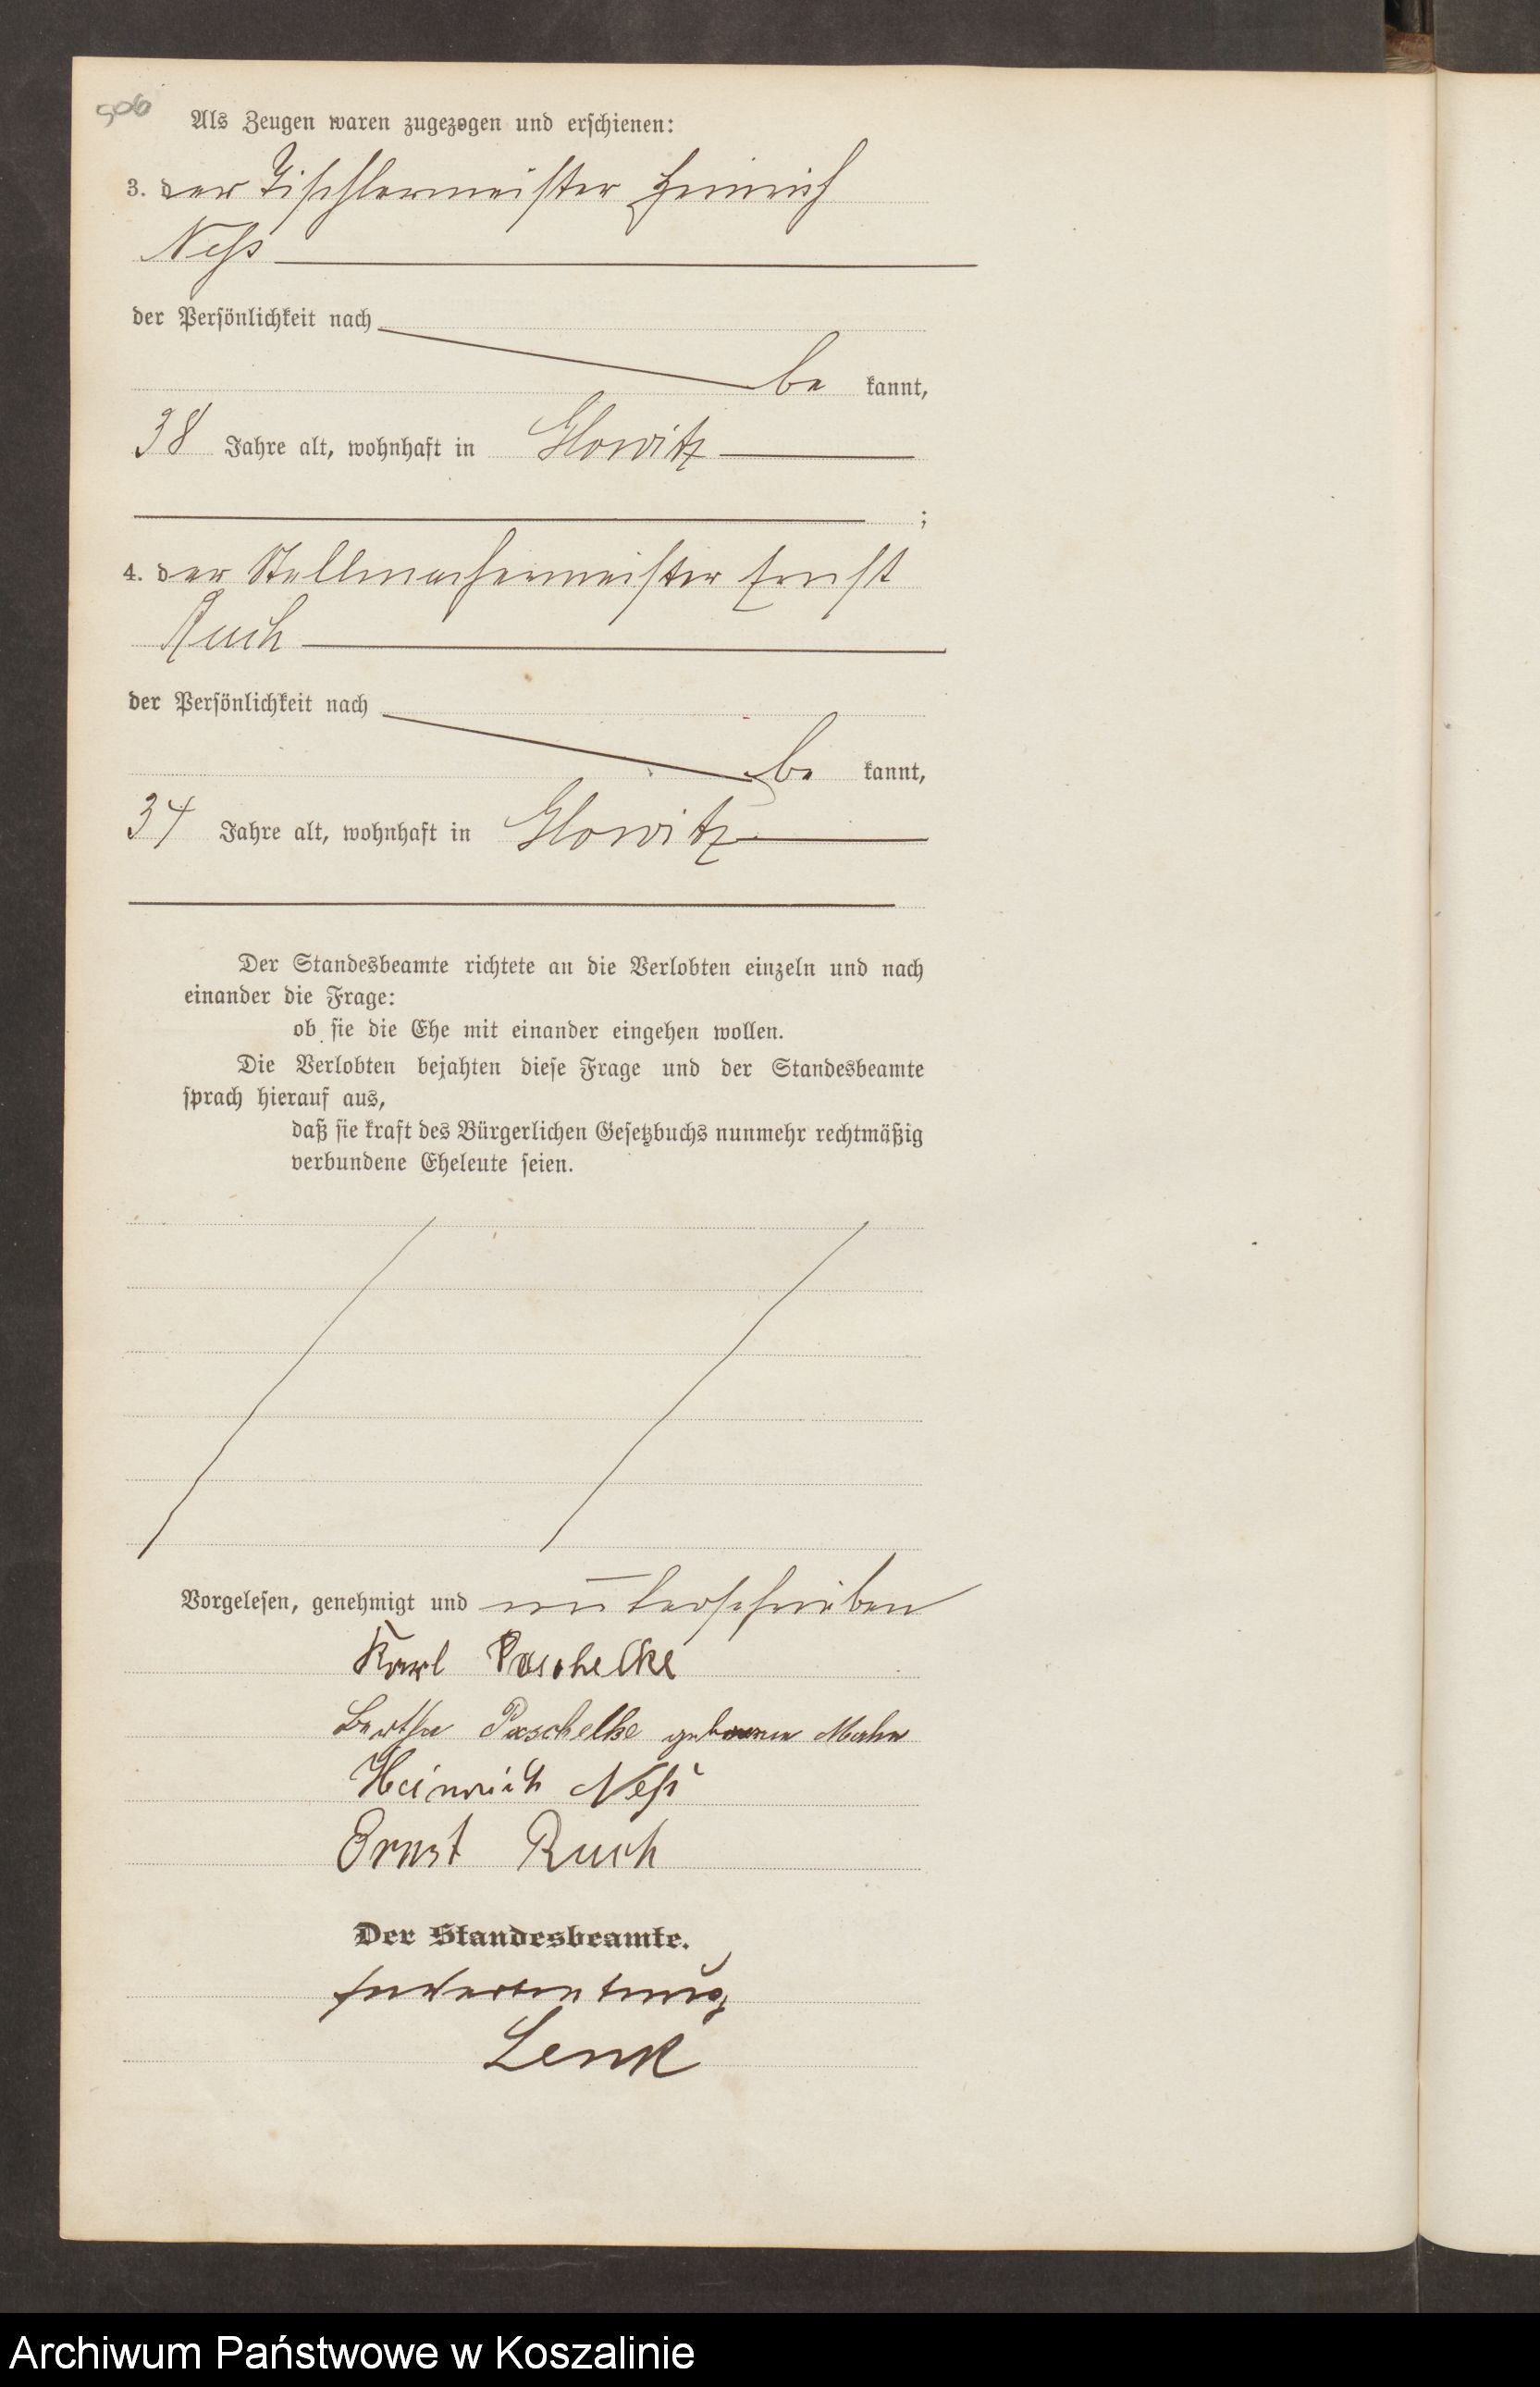 506
Als Zeugen waren zugezogen und erschienen:
3. der Tischlermeister Heinrich
Neß
der Persönlichkeit nach
be kannt,
38 Jahre alt, wohnhaft in Glowitz
;
4. der Stellmachermeister Ernst
Ruch
der Persönlichkeit nach
be kannt,
34 Jahre alt, wohnhaft in Glowitz
Der Standesbeamte richtete an die Verlobten einzeln und nach
einander die Frage:
ob sie die Ehe mit einander eingehen wollen.
Die Verlobten bejahten diese Frage und der Standesbeamte
sprach hierauf aus,
daß sie kraft des Bürgerlichen Gesetzbuchs nunmehr rechtmäßig
verbundene Eheleute seien.
Vorgelesen, genehmigt und unterschrieben
Karl Paschelke
Bertha Paschelke geborene Mahn
Heinrich Neß
Ernst Ruch
Der Standesbeamte.
In Vertretung
Lenk
Archiwum Państwowe w Koszalinie